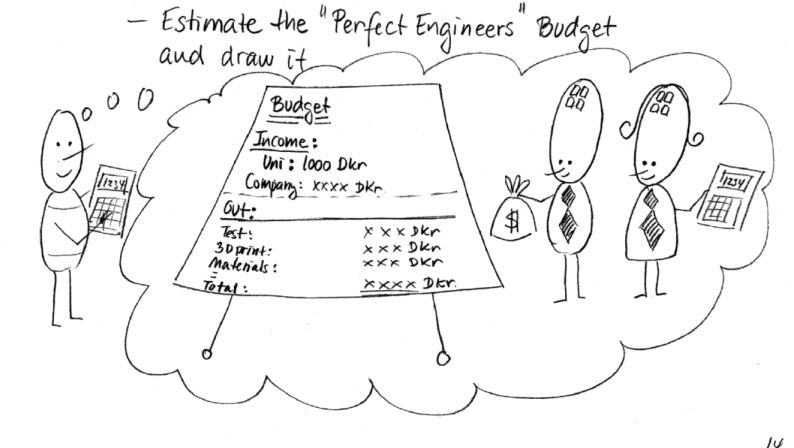 – Estimate the "Perfect Engineers" Budget
and draw it
Budget
Income:
Uni: 1000 Dkr
Company: xxxx Dkr
Out:
Test: xxx Dkr
3D print: xxx Dkr
Materials: xxx Dkr
Total: xxxx Dkr.
1234
$
1234
14